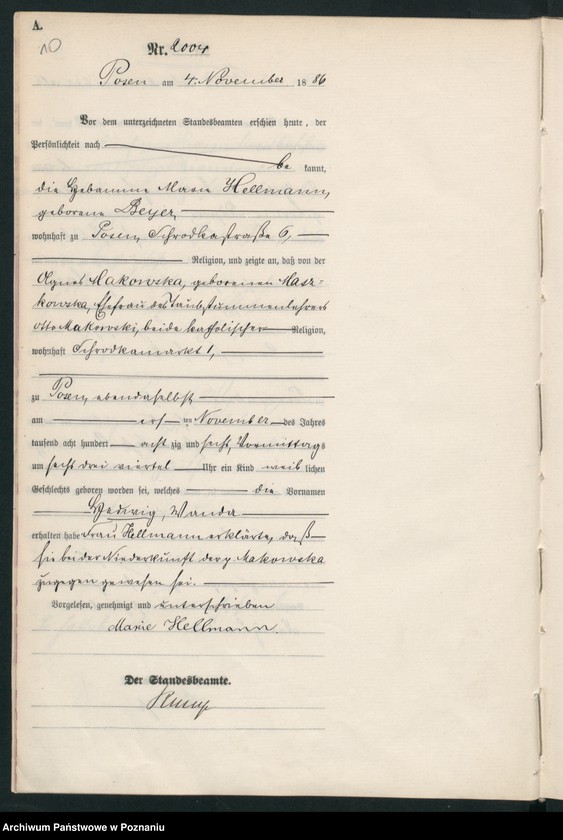 A.
10
Nr. 2004
Posen am 4. November 1886
Vor dem unterzeichneten Standesbeamten erschien heute, der
Persönlichkeit nach
be kannt,
die Hebamme Marie Hellmann,
geborene Beyer,
wohnhaft zu Posen, Schrodkastraße 6,
Religion, und zeigte an, daß von der
Agnes Makowska, geborenen Masz-
kowska, Ehefrau des Taubstummenlehrers
Otto Makowski, beide katholischer Religion,
wohnhaft Schrodkamarkt 1,
zu Posen, ebendaselbst
am ersten November des Jahres
tausend acht hundert acht zig und sechs, Vormittags
um sechs drei viertel Uhr ein Kind weib lichen
Geschlechts geboren worden sei, welches die Vornamen
Hedwig, Wanda
erhalten habe Frau Hellmann erklärte, daß
sie bei der Niederkunft der p. Makowska
zugegen gewesen sei.
Vorgelesen, genehmigt und unterschrieben
Marie Hellmann.
Der Standesbeamte.
Archiwum Państwowe w Poznaniu